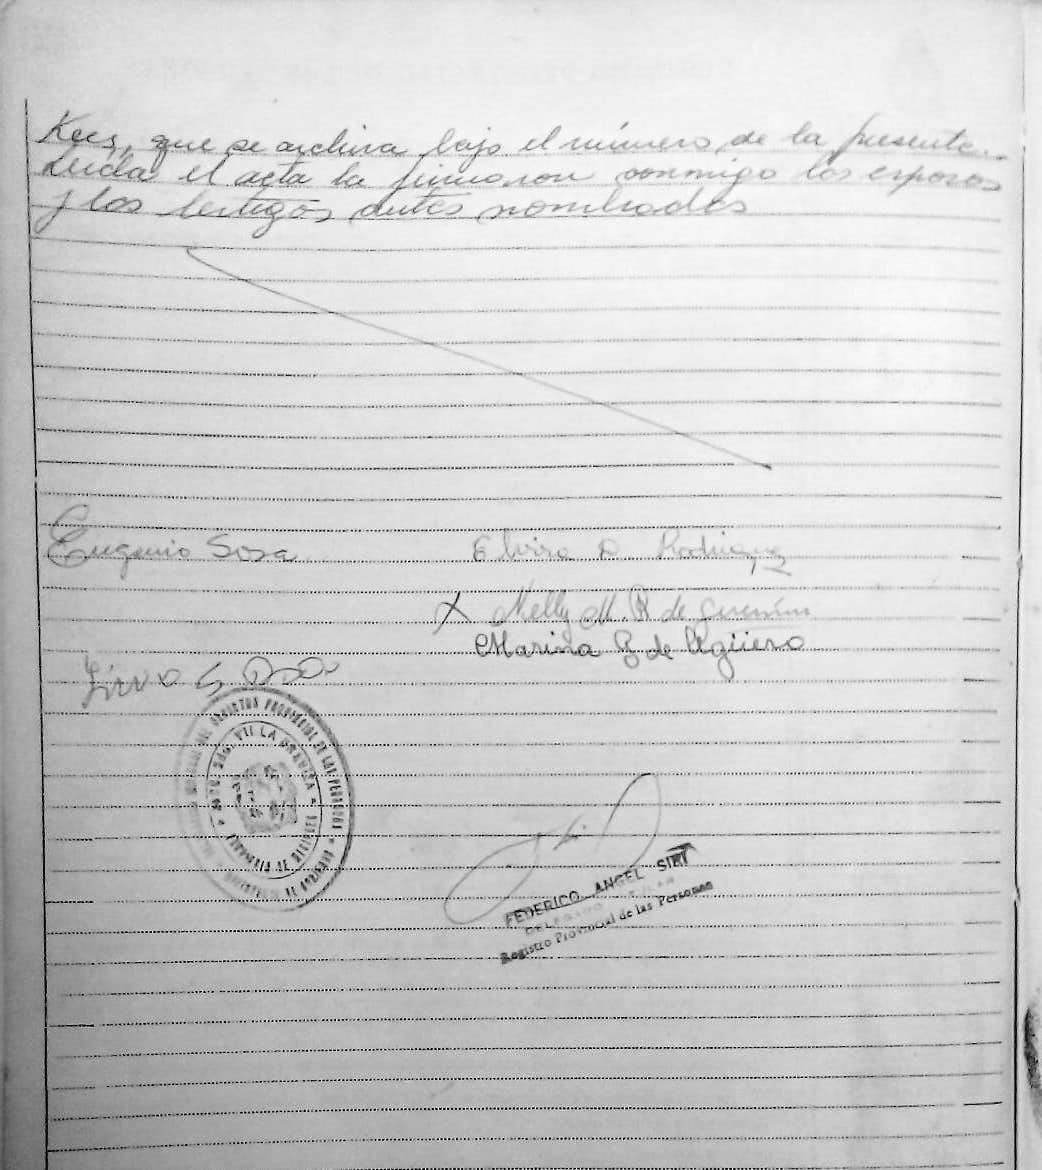 que se archiva bajo el número de la presente.-
Leída el acta la firmaron conmigo los esposos
y los testigos antes nombrados
Eugenio Sosa
Elvira D Rodriguez
X Nelly M. R de
Marina G de Agüero
REGISTRO PROVINCIAL DE LAS PERSONAS
VII LA
FEDERICO ANGEL SIRI
DELEGADO TITULAR
Registro Provincial de las Personas